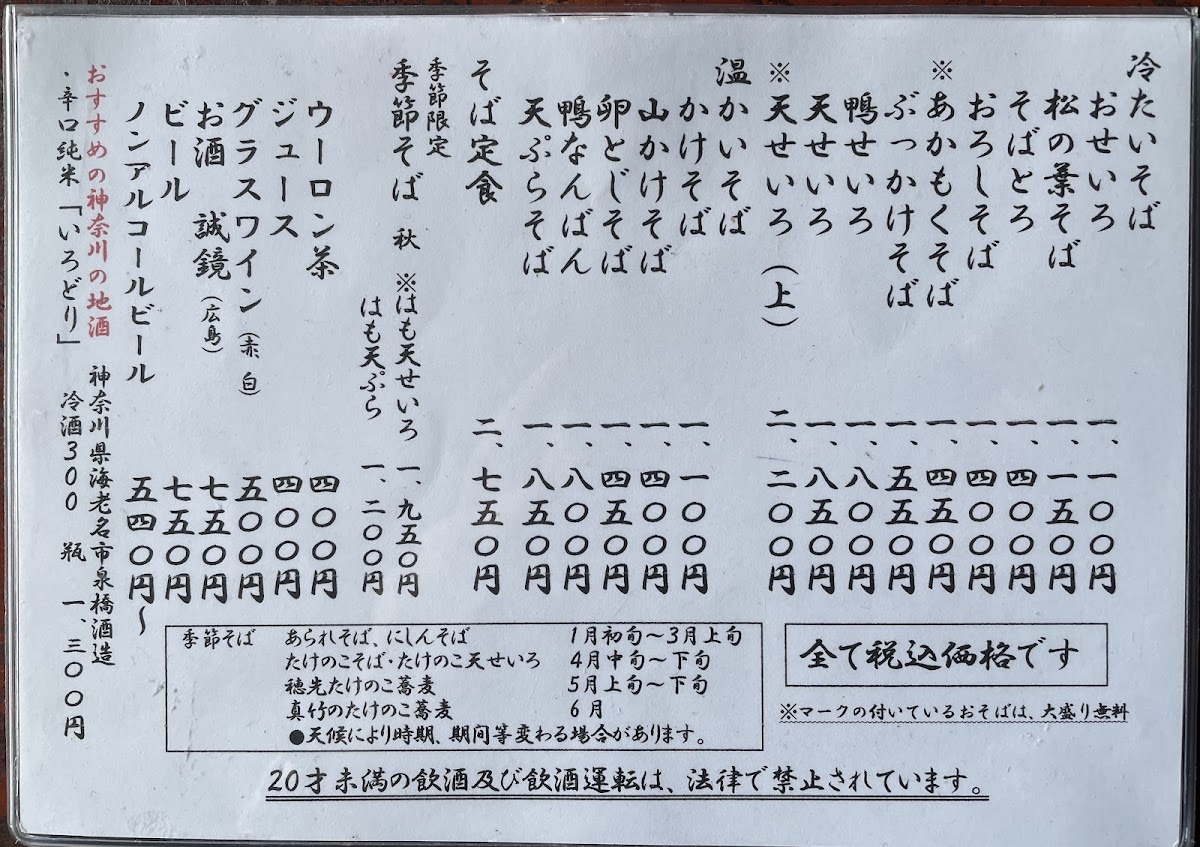 冷たいそば
おせいろ 一、一〇〇円
松の葉そば 一、一五〇円
そばとろ 一、四〇〇円
おろしそば 一、四〇〇円
※あかもくそば 一、四五〇円
ぶっかけそば 一、五五〇円
鴨せいろ 一、八〇〇円
天せいろ 一、八五〇円
※天せいろ(上) 二、二〇〇円
温かいそば
かけそば 一、一〇〇円
山かけそば 一、四〇〇円
卵とじそば 一、四五〇円
鴨なんばん 一、八〇〇円
天ぷらそば 一、八五〇円
そば定食 二、七五〇円
季節限定
季節そば 秋 ※はも天せいろ 一、九五〇円
はも天ぷら 一、二〇〇円
ウーロン茶 四〇〇円
ジュース 四〇〇円
グラスワイン(赤 白) 五〇〇円
お酒 誠鏡(広島) 七五〇円
ビール 七五〇円
ノンアルコールビール 五四〇円〜
おすすめの神奈川の地酒 神奈川県海老名市泉橋酒造
・辛口純米「いろどり」 冷酒300 瓶 一、三〇〇円
全て税込価格です
※マークの付いているおそばは、大盛り無料
季節そば あられそば、にしんそば 1月初旬〜3月上旬
たけのこそば・たけのこ天せいろ 4月中旬〜下旬
穂先たけのこ蕎麦 5月上旬〜下旬
真竹のたけのこ蕎麦 6月
●天候により時期、期間等変わる場合があります。
20才未満の飲酒及び飲酒運転は、法律で禁止されています。